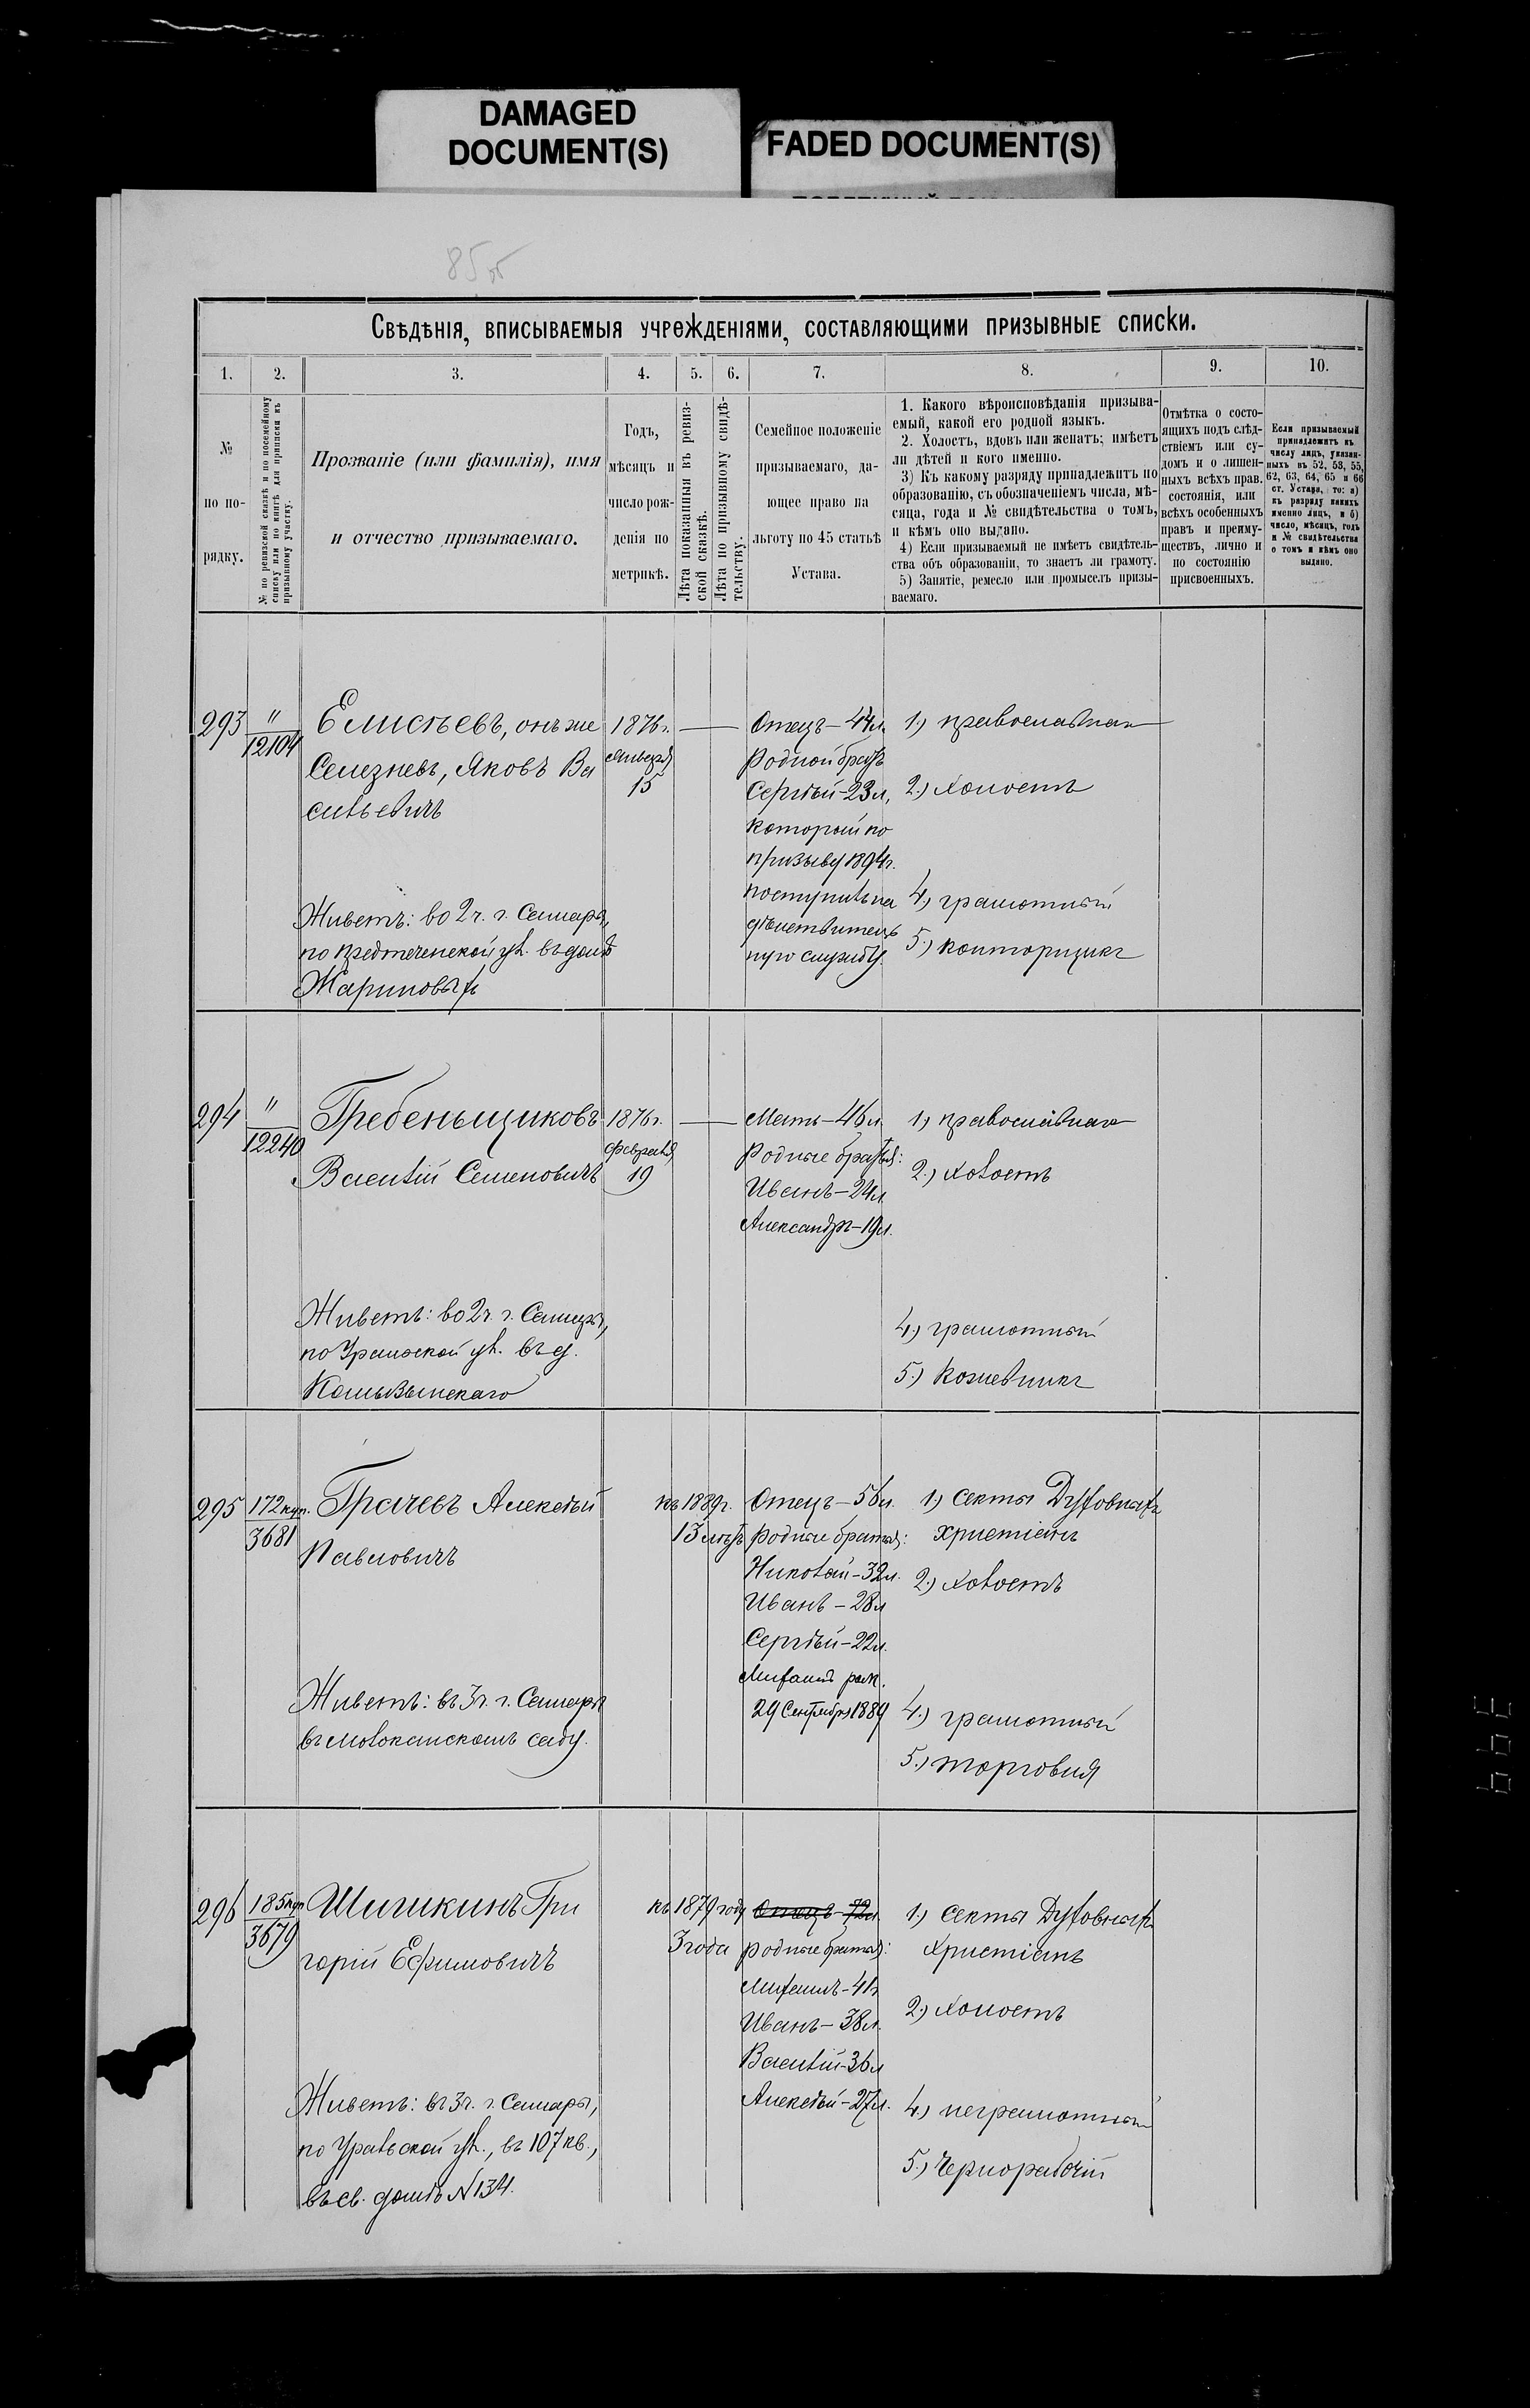 DAMAGED
DOCUMENT(S)
FADED DOCUMENT(S)
85 об
Свѣдѣнія, вписываемыя учрежденіями, составляющими призывные списки.
1. 2. 3. 4. 5. 6. 7. 8. 9. 10.
№
по по-
рядку.
№ по ревизской сказкѣ и по посемейному
списку или по книгѣ для приписки къ
призывному участку.
Прозваніе (или фамилія), имя
и отчество призываемаго.
Годъ,
мѣсяцъ и
число рож-
денія по
метрикѣ.
Лѣта показанныя въ ревиз-
ской сказкѣ.
Лѣта по призывному свидѣ-
тельству.
Семейное положеніе
призываемаго, да-
ющее право на
льготу по 45 статьѣ
Устава.
1. Какого вѣроисповѣданія призыва-
емый, какой его родной языкъ.
2. Холостъ, вдовъ или женатъ; имѣетъ
ли дѣтей и кого именно.
3) Къ какому разряду принадлежитъ по
образованію, съ обозначеніемъ числа, мѣ-
сяца, года и № свидѣтельства о томъ,
и кѣмъ оно выдано.
4) Если призываемый не имѣетъ свидѣтель-
ства объ образованіи, то знаетъ ли грамоту.
5) Занятіе, ремесло или промыселъ призы-
ваемаго.
Отмѣтка о состо-
ящихъ подъ слѣд-
ствіемъ или су-
домъ и о лишен-
ныхъ всѣхъ прав.
состоянія, или
всѣхъ особенныхъ
правъ и преиму-
ществъ, лично и
по состоянію
присвоенныхъ.
Если призываемый
принадлежитъ къ
числу лицъ, указан-
ныхъ въ 52, 53, 55,
62, 63, 64, 65 и 66
ст. Устава, то: а)
къ разряду какихъ
именно лицъ, и б)
число, мѣсяцъ, годъ
и № свидѣтельства
о томъ и кѣмъ оно
выдано.
293
"
12104
Елисѣевъ, онъ же
Селезневъ, Яковъ Ва
сильевичъ
Живетъ: во 2 ч. г. Самары,
по Предтеченской ул. въ домѣ
Жариновыхъ
1876 г.
Января
15
Отецъ – 44 л.
Родной братъ
Сергѣй – 23 л,
который по
призыву 1894 г.
поступилъ на
дѣйствитель
ную службу.
1.) православнаго
2.) холостъ
4.) грамотный
5.) конторщикъ
294
"
12240
Гребеньщиковъ
Василій Семеновичъ
Живетъ: во 2 ч. г. Самары,
1876 г.
февраля
19
Мать – 46 л.
Родные братья:
Иванъ – 24 л.
Александръ – 19 л.
1.) православнаго
2.) холостъ
4.) грамотный
5.) кожевникъ
295
172 куп.
3681
Грачевъ Алексѣй
Павловичъ
Живетъ: въ 3 ч. г. Самары
въ молоканскомъ саду.
къ 1889 г.
13 лѣтъ
Отецъ – 56 л.
родные братья:
Николай – 32 л.
Иванъ – 28 л
Сергѣй – 22 л.
Михаилъ рож.
29 Сентября 1889
1.) секты Духовныхъ
христіанъ
2.) холостъ
4.) грамотный
5.) торговля
296
185 куп
3679
Шишкинъ Гри
горій Ефимовичъ
Живетъ: въ 3 ч. г. Самары,
по Уральской ул., въ 107 кв.,
въ св. домѣ № 134.
къ 1879 году
3 года
Отецъ – 72 л
родные братья:
Михаилъ – 41 г
Иванъ – 38 л.
Василій – 36 л
Алексѣй – 27 л.
1.) секты Духовныхъ
Христіанъ
2.) холостъ
4.) неграмотный
5.) Чернорабочій